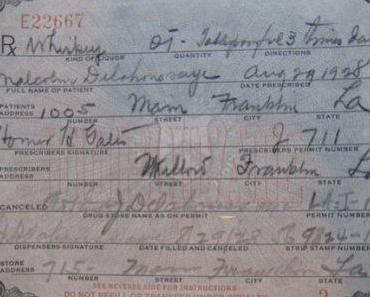 E22667
Rx Whiskey Qt - Tablespoonful 3 times da
KIND OF LIQUOR QUANTITY DIRECTIONS
Malcolm Delahoussaye Aug 29 1928
FULL NAME OF PATIENT DATE PRESCRIBED
PATIENTS ADDRESS 1005 Main Franklin La
NUMBER STREET CITY STATE
Homer H J 711
PRESCRIBERS SIGNATURE PRESCRIBERS PERMIT NUMBER
PRESCRIBERS ADDRESS Willow Franklin La
NUMBER STREET CITY STATE
CANCELED Delahoussaye La-I-1
DRUG STORE NAME AS ON PERMIT PERMIT NUMBER
8/29/28
DISPENSERS SIGNATURE DATE FILLED AND CANCELED STRIP STAMP NUMBER
STORE ADDRESS 715 Main Franklin La
NUMBER STREET CITY STATE
SEE REVERSE SIDE FOR INSTRUCTIONS
DO NOT REFILL OR TRANSFER UNDER PENAL